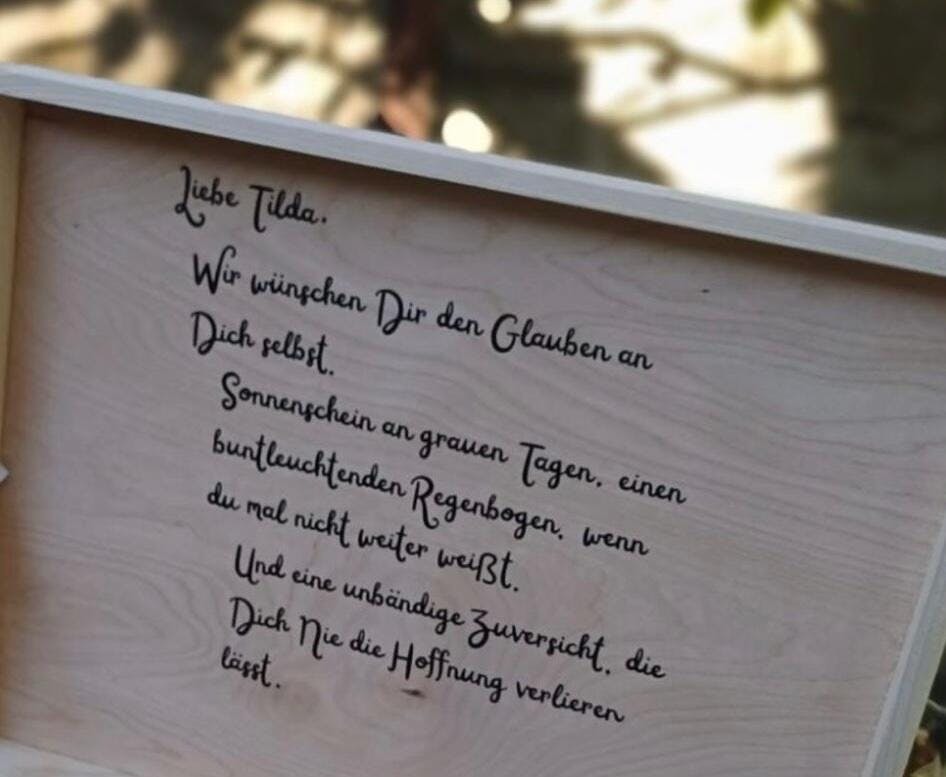 Liebe Tilda,
Wir wünschen Dir den Glauben an
Dich selbst.
Sonnenschein an grauen Tagen, einen
buntleuchtenden Regenbogen, wenn
du mal nicht weiter weißt.
Und eine unbändige Zuversicht, die
Dich Nie die Hoffnung verlieren
lässt.